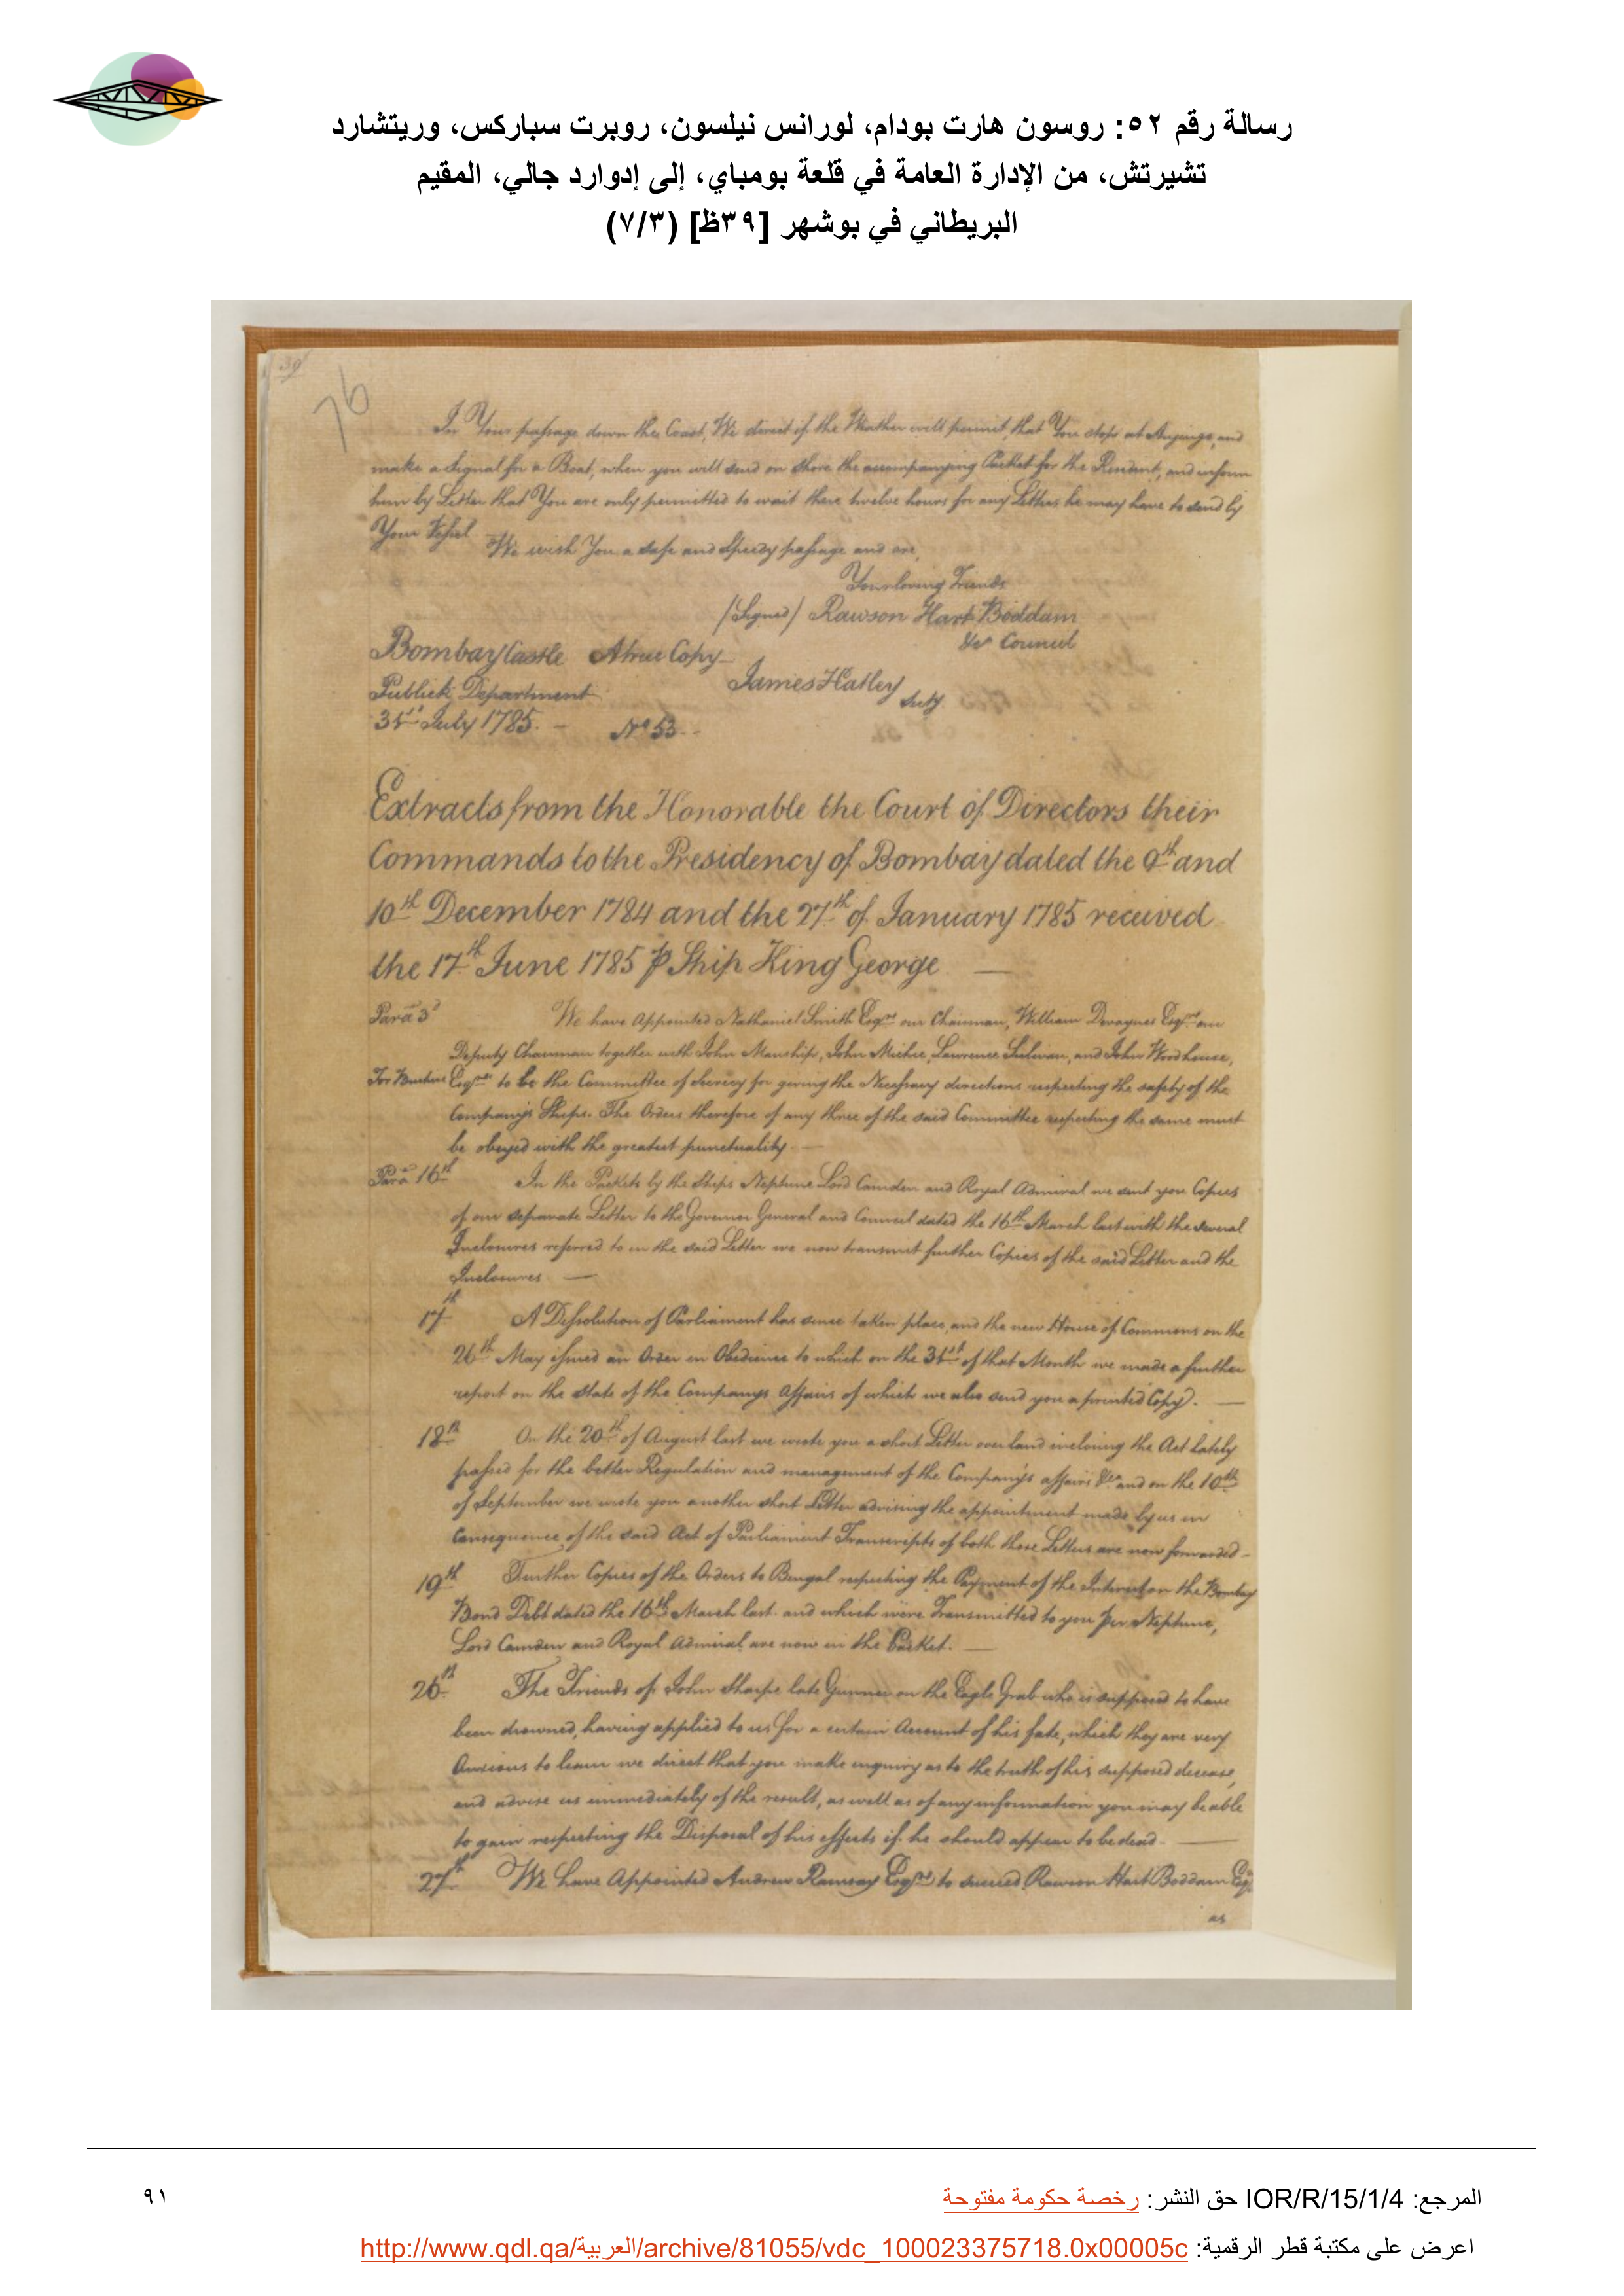 رسالة رقم ٥٢: روسون هارت بودام، لورانس نيلسون، روبرت سباركس، وريتشارد
تشيرتش، من الإدارة العامة في قلعة بومباي، إلى إدوارد جالي، المقيم
البريطاني في بوشهر [٣٩ظ] (٧/٣)
39
76
In Your passage down the Coast, We direct if the Weather will permit, that You stop at Anjengo, and
make a Signal for a Boat, when you will send on shore the accompanying Packet for the Resident, and inform
him by Letter that You are only permitted to wait there twelve hours for any Letters he may have to send by
Your Vessel
We wish You a safe and Speedy passage and are,
Your loving Friends
(Signed) Rawson Hart Boddam
&ca Council
Bombay Castle A true Copy
James Hatley
Secty
Publick Department
31st July 1785. –
No 53
Extracts from the Honorable the Court of Directors their
Commands to the Presidency of Bombay dated the 9th and
10th December 1784 and the 27th of January 1785 received
the 17th June 1785 ⅌ Ship King George
Para 3d We have Appointed Nathaniel Smith Esqre our Chairman, William Devaynes Esqre our
Deputy Chairman together with John Manship, John Michie, Lawrence Sulivan, and John Woodhouse,
Esqres to be the Committee of Secrecy for giving the Necessary directions respecting the safety of the
Company's Ships. The Orders therefore of any three of the said Committee respecting the same must
be obeyed with the greatest punctuality.
Para 16th In the Packets by the Ships Neptune Lord Camden and Royal Admiral we sent you Copies
of our separate Letter to the Governor General and Council dated the 16th March last with the several
Inclosures referred to in the said Letter we now transmit further Copies of the said Letter and the
Inclosures
17th A Dissolution of Parliament has since taken place, and the new House of Commons on the
26th May issued an Order in Obedience to which on the 31st of that Month we made a further
report on the state of the Companys Affairs of which we also send you a printed Copy.
18th On the 20th of August last we wrote you a short Letter over land inclosing the Act lately
passed for the better Regulation and management of the Company's affairs &ca and on the 10th
of September we wrote you another short Letter advising the appointment made by us in
Consequence of the said Act of Parliament Transcripts of both those Letters are now forwarded
19th Further Copies of the Orders to Bengal respecting the Payment of the Interest on the Bombay
Bond Debt dated the 16th March last and which were Transmitted to you per Neptune,
Lord Camden and Royal Admiral are now in the Packet.
26th The Friends of John Sharpe late Gunner on the Eagle Grab who is supposed to have
been drowned, having applied to us for a certain Account of his fate, which they are very
Anxious to learn we direct that you make enquiry as to the truth of his supposed decease,
and advise us immediately of the result, as well as of any information you may be able
to gain respecting the Disposal of his effects if he should appear to be dead
27th We have Appointed Andrew Ramsay Esqre to succeed Rawson Hart Boddam Esqr
as
المرجع: IOR/R/15/1/4 حق النشر: رخصة حكومة مفتوحة
٩١
اعرض على مكتبة قطر الرقمية: http://www.qdl.qa/العربية/archive/81055/vdc_100023375718.0x00005c